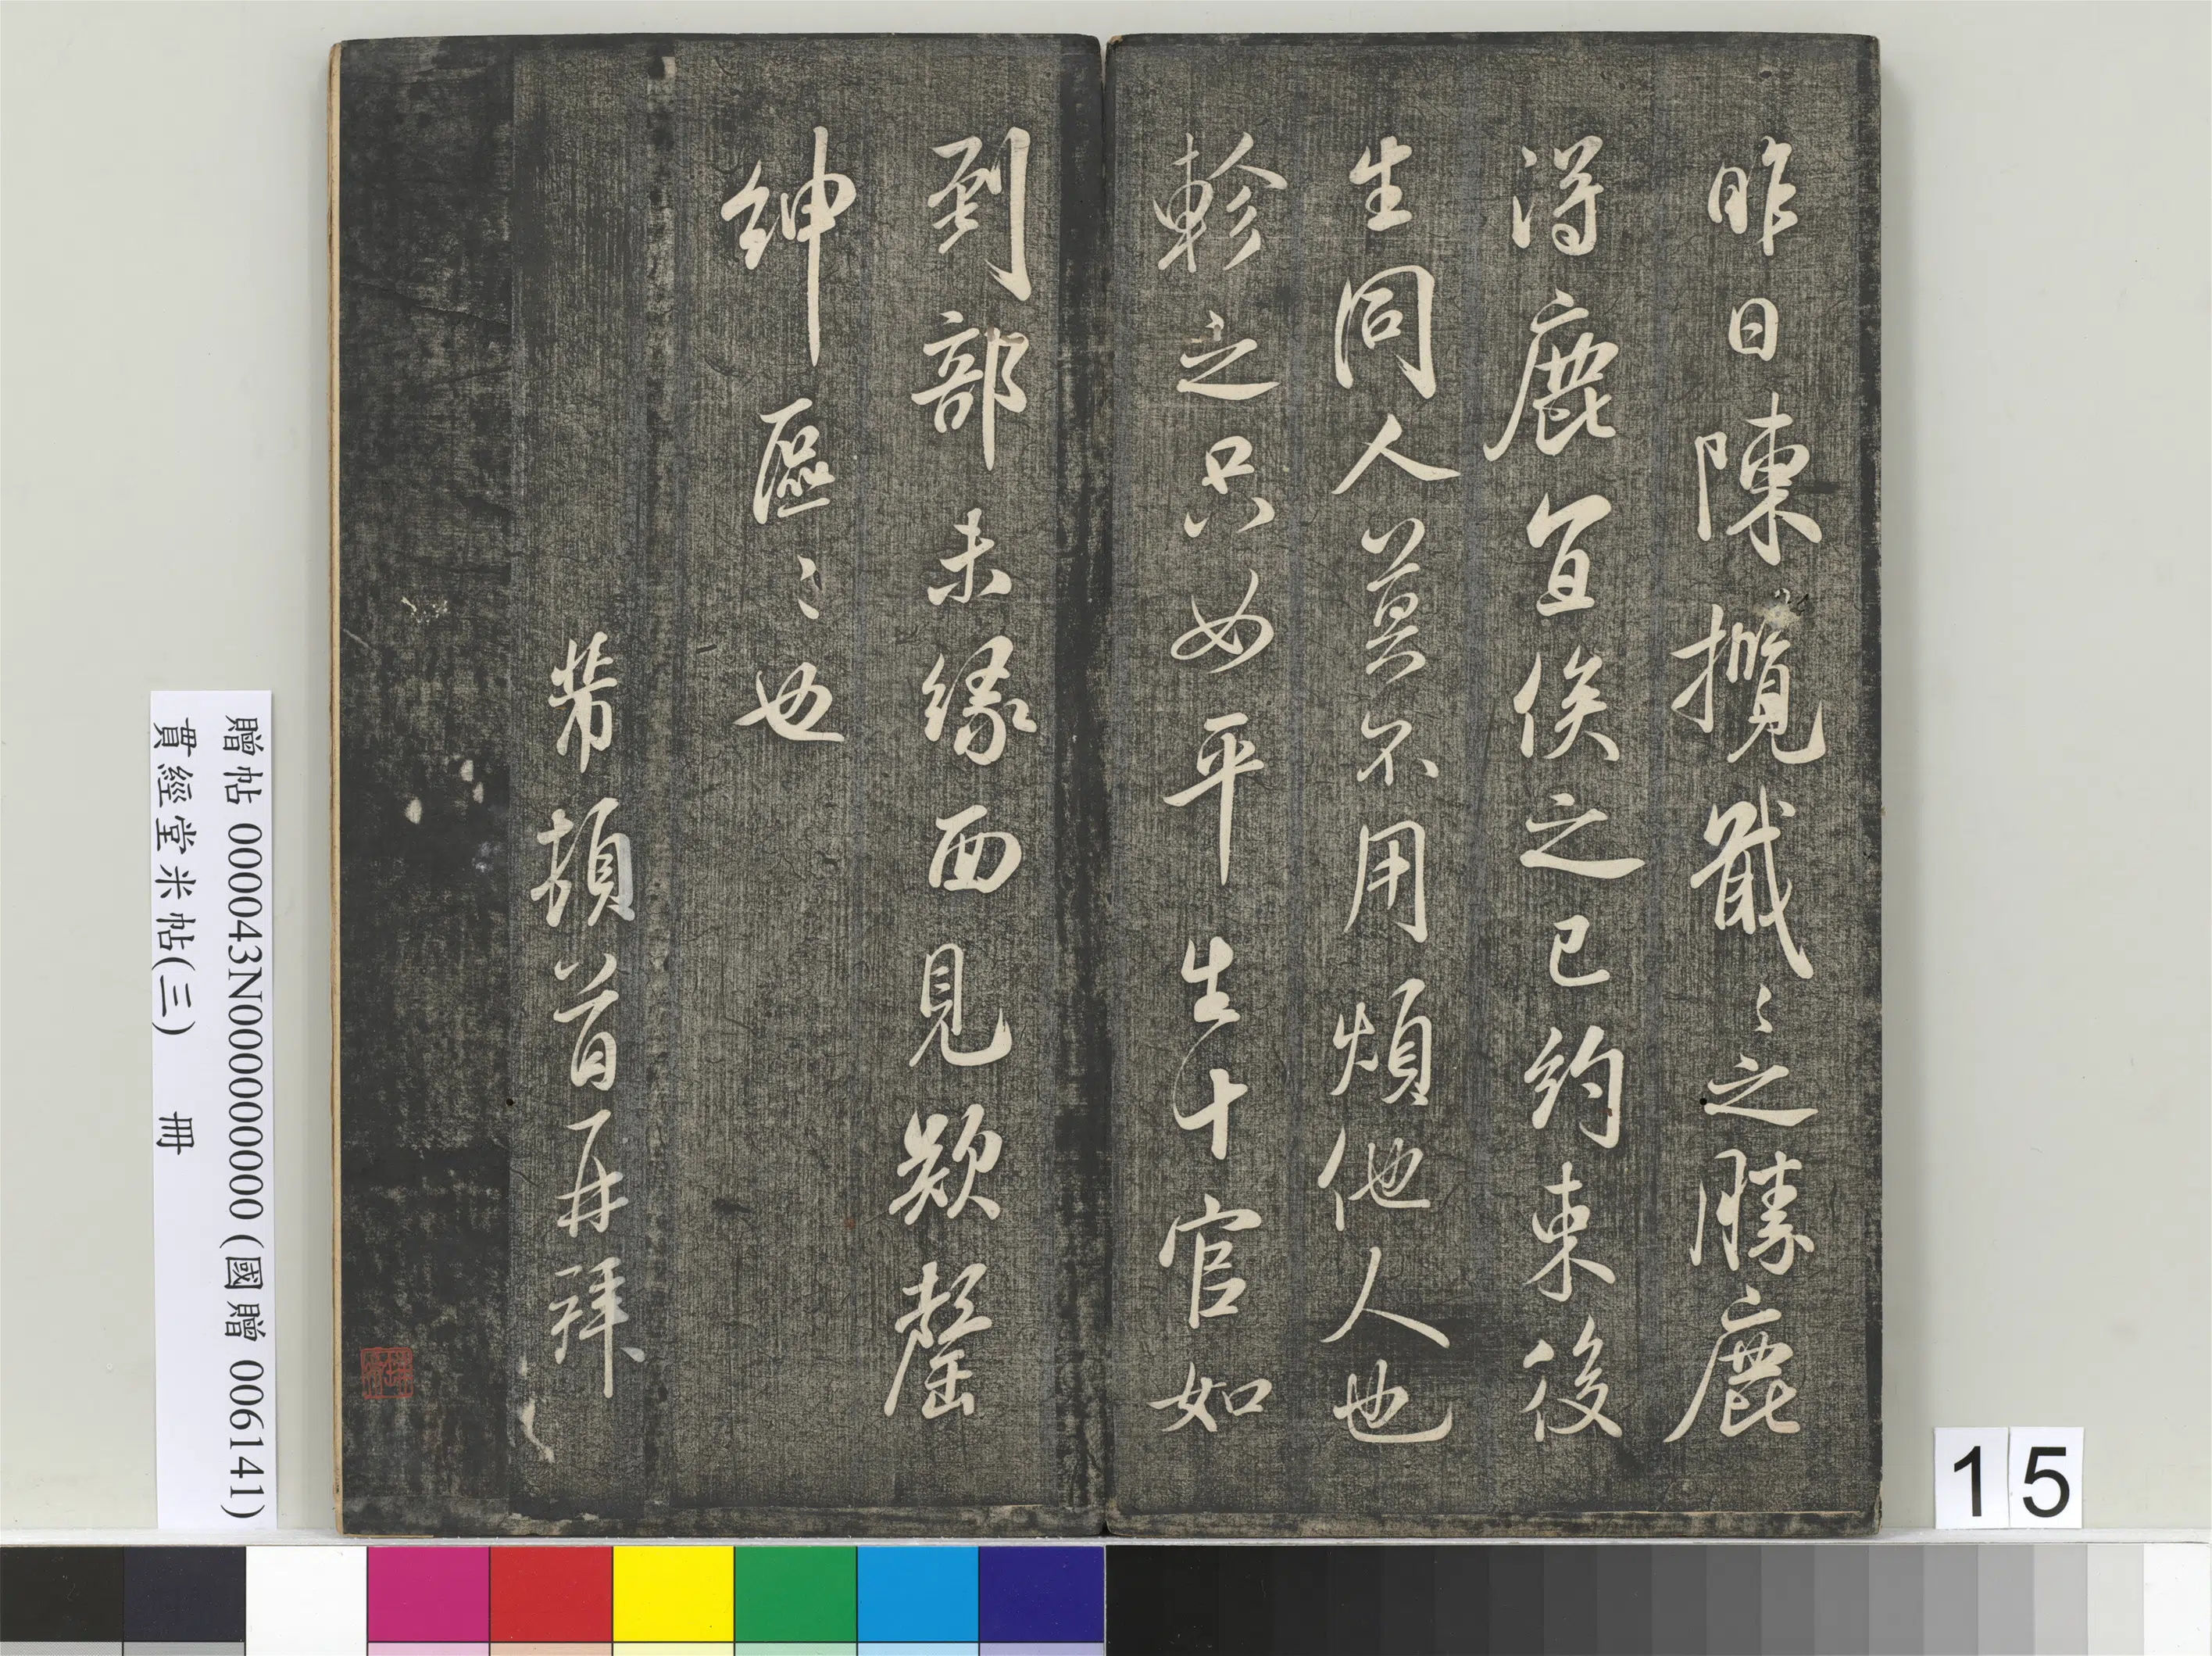 昨日陳攬戢〻之勝鹿
得鹿宜俟之已約束後
生同人莫不用煩他人也
軫之只如平生十官如
到部未緣面見欵罄
紳區〻也
芾頓首再拜
贈帖 000043N000000000 (國贈 006141)
貫經堂米帖(三) 冊
15